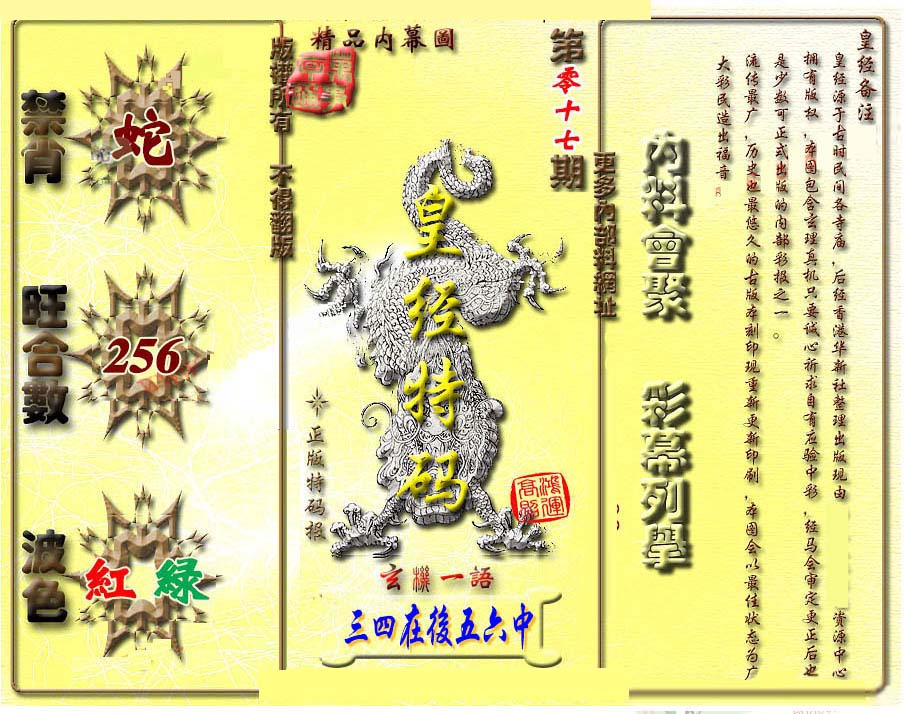 皇经备注
皇经源于古时民间各寺庙,后经香港华新社整理出版现由 资源中心
拥有版权,本图包含玄理真机只要诚心祈求自有应验中彩,经马会审定更正后也
是少数可正式出版的内部彩报之一。
流传最广,历史也最悠久的古版本刻印现重新更新印刷,本图会以最佳状态为广
大彩民造出福音
內料會聚
彩幕列舉
更多內部料網址
第零十七期
精品内幕圖
皇经特码
正版特码报
鴻運
高照
玄機一語
三四在後五六中
版權所有 不得翻版
禁肖
蛇
旺合數
256
波色
紅 綠